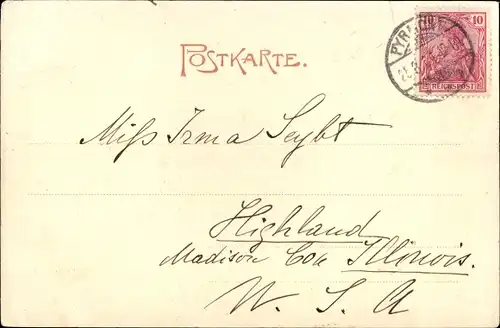 10 10
REICHSPOST
POSTKARTE.
Miss Irma Seybt
Highland
Madison Co. Illinois.
U. S. A